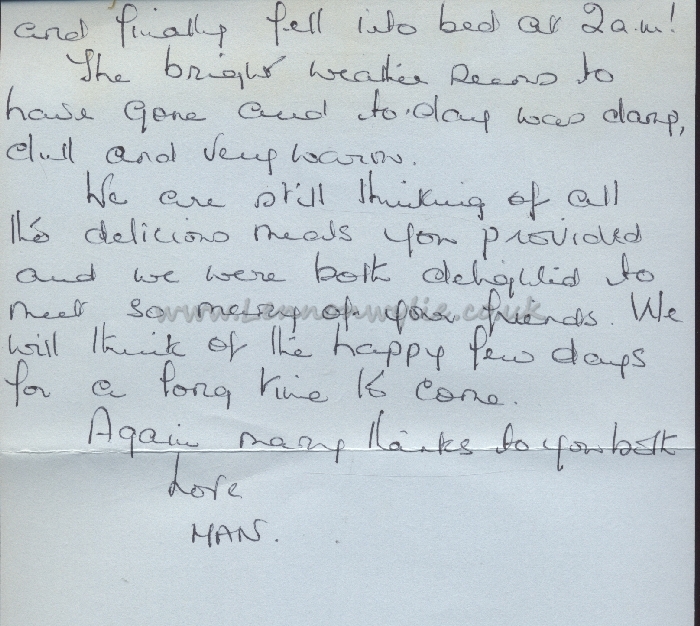 and finally fell into bed at 2 a.m!
The bright weather seems to
have gone and to-day was damp,
dull and very warm.
We are still thinking of all
the delicious meals you provided
and we were both delighted to
meet so many of your friends. We
www.Lennonwylie.co.uk
will think of the happy few days
for a long time to come.
Again many thanks to you both
Love
MAN.